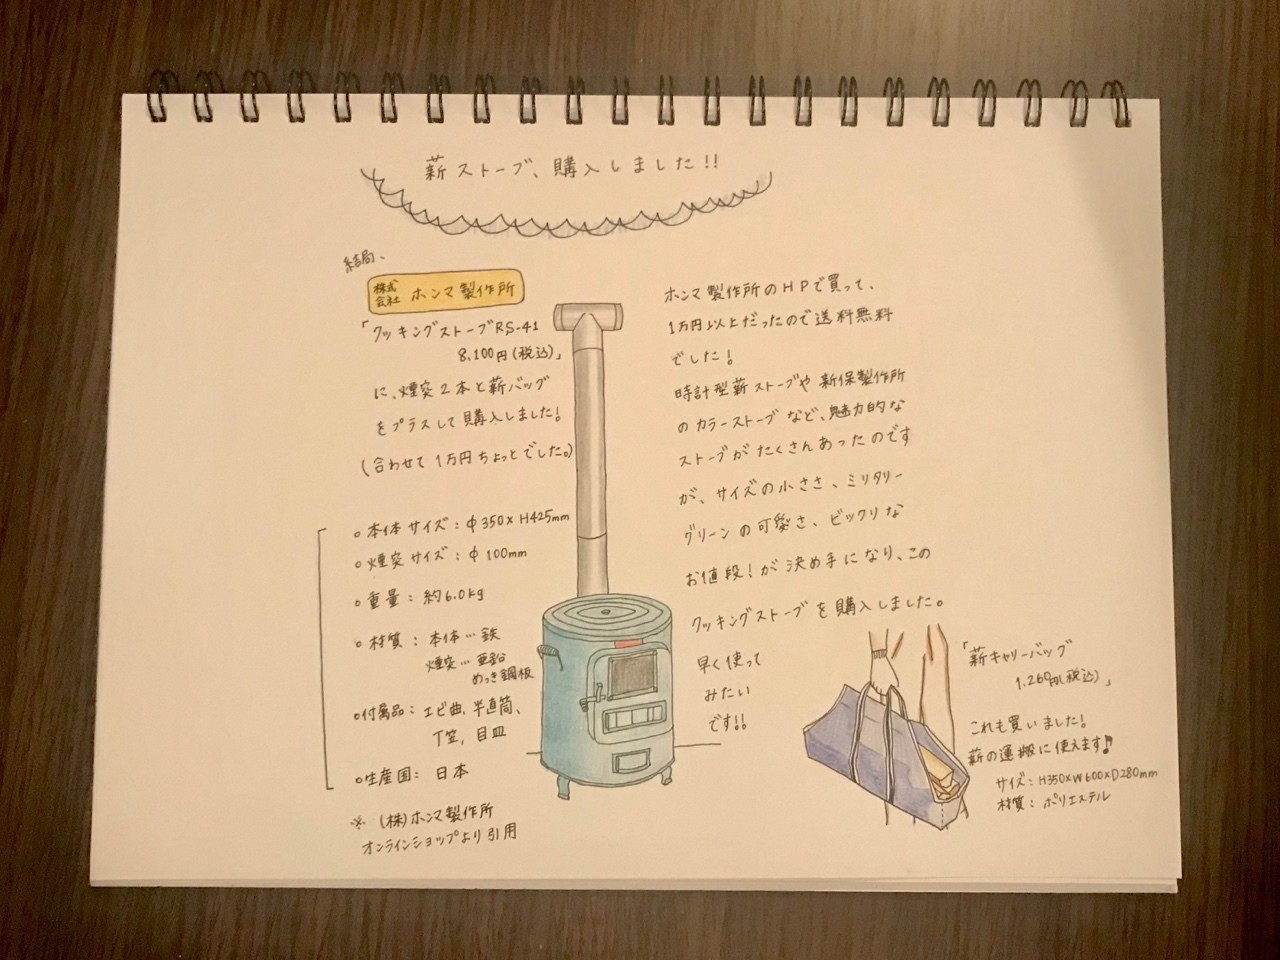 薪ストーブ、購入しました!!
結局、
株式
会社 ホンマ製作所
「クッキングストーブRS-41
8,100円(税込)」
に、煙突2本と薪バッグ
をプラスして購入しました!
(合わせて1万円ちょっとでした。)
○本体サイズ:φ350×H425mm
○煙突サイズ:φ100mm
○重量:約6.0kg
○材質:本体…鉄
煙突…亜鉛
めっき鋼板
○付属品:エビ曲、半直筒、
T笠、目皿
○生産国:日本
※(株)ホンマ製作所
オンラインショップより引用
ホンマ製作所のHPで買って、
1万円以上だったので送料無料
でした!
時計型薪ストーブや新保製作所
のカラーストーブなど、魅力的な
ストーブがたくさんあったのです
が、サイズの小ささ、ミリタリー
グリーンの可愛さ、ビックリな
お値段!が決め手になり、この
クッキングストーブを購入しました。
早く使って
みたい
です!!
「薪キャリーバッグ
1,260円(税込)」
これも買いました!
薪の運搬に使えます♪
サイズ:H350×W600×D280mm
材質:ポリエステル